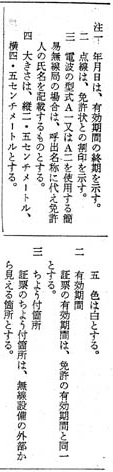 注一 年月日は、有効期間の終期を示す。
二 点線は、免許状との割印を示す。
三 電波の型式A一又はA二を使用する簡
易無線局の場合は、呼出名称に代え免許
人の氏名を記載するものとする。
四 大きさは、縦二・五センチメートル、
横四・五センチメートルとする。
五 色は白とする。
二 有効期間
証票の有効期間は、免許の有効期間と同一
とする。
三 ちよう付箇所
証票のちよう付箇所は、無線設備の外部か
ら見える箇所とする。